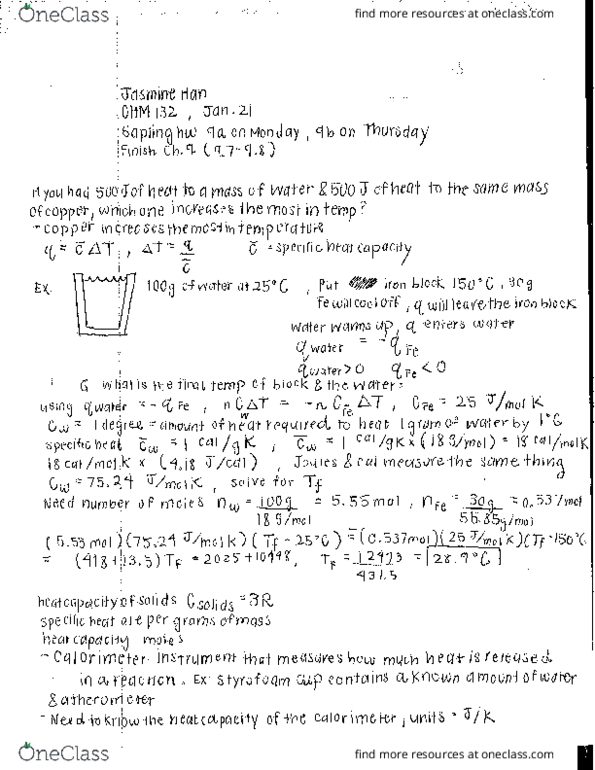 OneClass
find more resources at oneclass.com
Jasmine Han
CHM 132 , Jan. 21
Sapling hw 9a on Monday , 9b on Thursday
Finish Ch. 9 ( 9.7-9.8 )
If you had 500 J of heat to a mass of water & 500 J of heat to the same mass
of copper, which one increases the most in temp?
- copper increases the most in temperature
q = c̄ ΔT , ΔT = q / c̄   c̄ = specific heat capacity
Ex. 100g of water at 25°C , Put iron block 150°C , 30g
Fe will cool off, q will leave the iron block
water warms up, q enters water
q water = - q Fe
q water > 0   q Fe < 0
G what is the final temp of block & the water?
using q water = - q Fe , n C̄w ΔT = - n C̄Fe ΔT , C̄Fe = 25 J/mol K
Cw = 1 degree = amount of heat required to heat 1 gram of water by 1°C
specific heat c̄w = 1 cal/g K , c̄w = 1 cal/g K × (18 g/mol) = 18 cal/mol K
18 cal/mol K × (4.18 J/cal) , Joules & cal measure the same thing
Cw = 75.24 J/mol K , solve for Tf
Need number of moles nw = 100g / 18 g/mol = 5.55 mol , nFe = 30g / 55.85 g/mol = 0.537 mol
(5.55 mol) (75.24 J/mol K) (Tf - 25°C) = -(0.537 mol) (25 J/mol K) (Tf - 150°C)
= (418 + 13.5) Tf = 2025 + 10448 , Tf = 12473 / 431.5 = 28.9°C
heat capacity of solids C solids = 3R
specific heat are per grams of mass
heat capacity moles
- Calorimeter: instrument that measures how much heat is released
in a reaction. Ex: styrofoam cup contains a known amount of water
& a thermometer
- Need to know the heat capacity of the calorimeter, units = J/K
OneClass
find more resources at oneclass.com